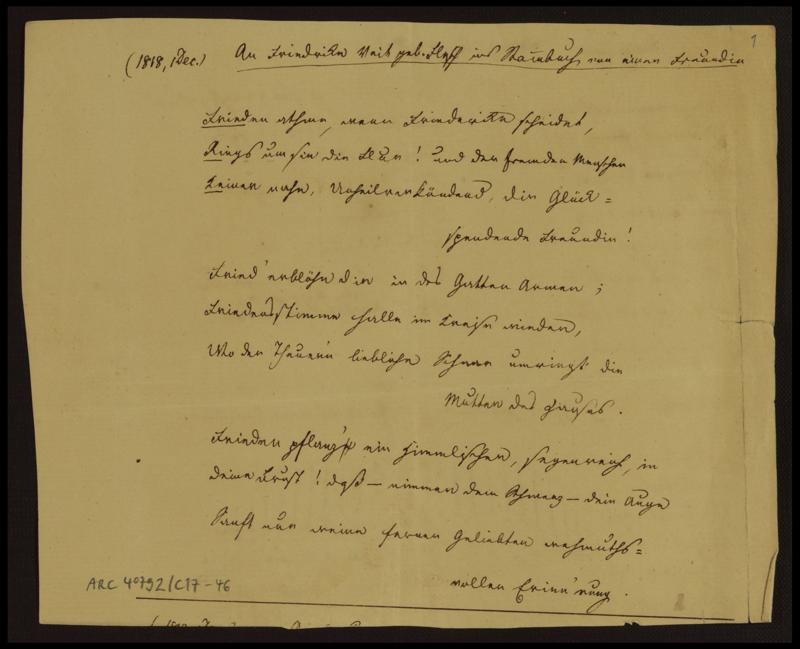 1
(1818, Dec.) An Friedrike Veit geb. Fließ ins Stammbuch von einer Freundin
Frieden athme, wenn Friederike scheidet,
Rings um sie die Flur! und der fremden Menschen
Keiner nahe, Unheilverkündend, die Glück=
spendende Freundin!
Fried' erblühe dir in des Gatten Armen;
Friedensstimme halle im Kreise wieder,
Wo der Theuern liebliche Schaar umringt die
Mutter des Hauses.
Frieden pflanz' ein Himmlischer, segenreich, in
deine Brust! daß — nimmer dem Schmerz — dein Auge
Sanft nur weine fernen Geliebten wehmuths=
vollen Erinn'rung.
ARC 4°792/C17-46